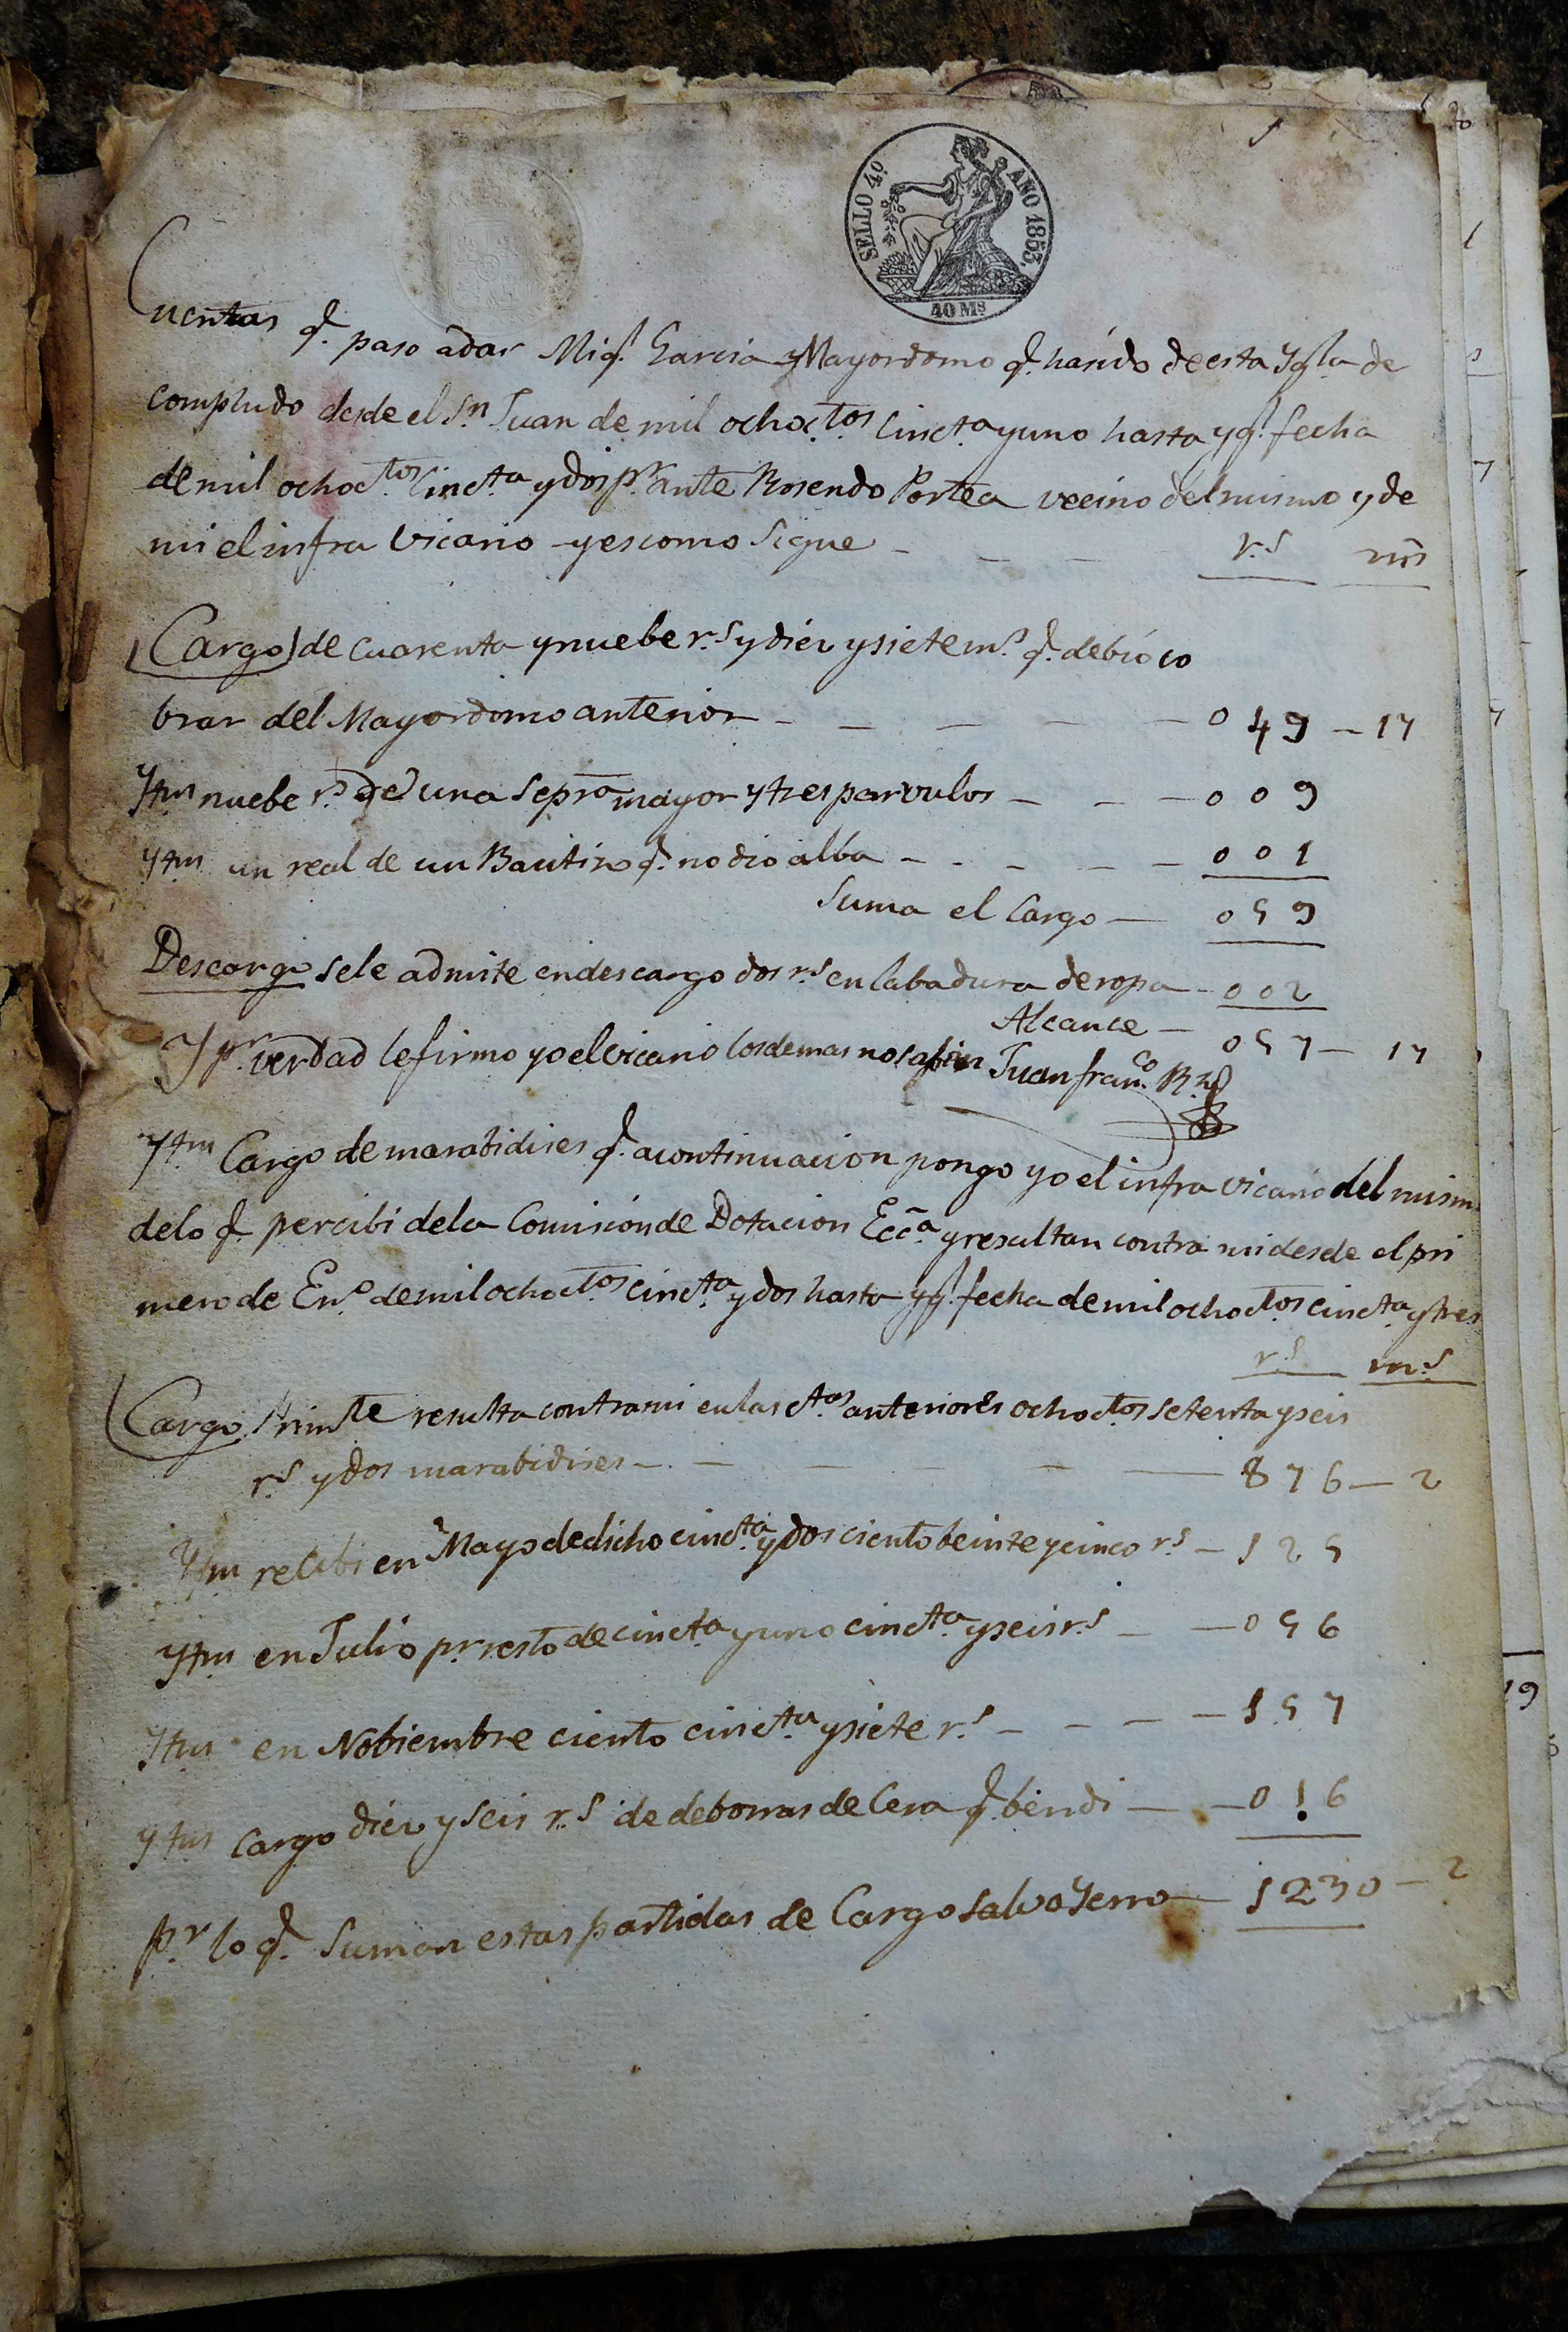 SELLO 4º AÑO 1853.
40 Ms
Cuentas q.e paso adar Mig.l Garcia y Mayordomo q.e hasido de esta Ygl.a de
compludo desde el S.n Juan de mil ochoc.tos cinct.a y uno hasta ygl. fecha
de mil ochoc.tos cinct.a y dos p.r ante Rosendo Portea vecino del mismo y de
mi el infra Vicario y es como sigue - - - r.s ms
Cargo de cuarenta y nuebe r.s y diez y siete m.s q.e debio co
brar del Mayordomo anterior - - - - - 0 49 - 17
Ytm nuebe r.s de una sepra mayor y tres parvulos - - - 0 0 9
Ytm un real de un Bautizo q.e no dio alba - - - - - 0 0 1
Suma el Cargo - 0 5 9
Descargo se le admite en descargo dos r.s en labadura de ropa - 0 0 2
Alcance - 0 5 7 - 17
Y p.r verdad lo firmo yo el vicario los demas no saben Juan fran.co Rz
Ytm Cargo de marabidises q.e a continuacion pongo yo el infra vicario del mism
de lo q.e percibi de la Comision de Dotacion Ecc.a y resultan contra mi desde el pri
mero de En.o de mil ochoc.tos cinct.a y dos hasta ygl. fecha de mil ochoc.tos cinct.a y tres
r.s m.s
Cargo resulta contra mi en las ctas anteriores ochoc.tos setenta y seis
r.s y dos marabidises - - - - - 8 7 6 - 2
Ytm recibi en Mayo de dicho cinct.a y dos ciento beinte y cinco r.s - 1 2 5
Ytm en Julio p.r resto de cinct.a y uno cinct.a y seis r.s - - 0 5 6
Ytm en Nobiembre ciento cinct.a y siete r.s - - - - 1 5 7
Ytm cargo diez y seis r.s de deborras de Cera q.e bendi - - 0 1 6
P.r lo q.e suman estas partidas de Cargo salvo Yerro - 1 2 3 0 - 2